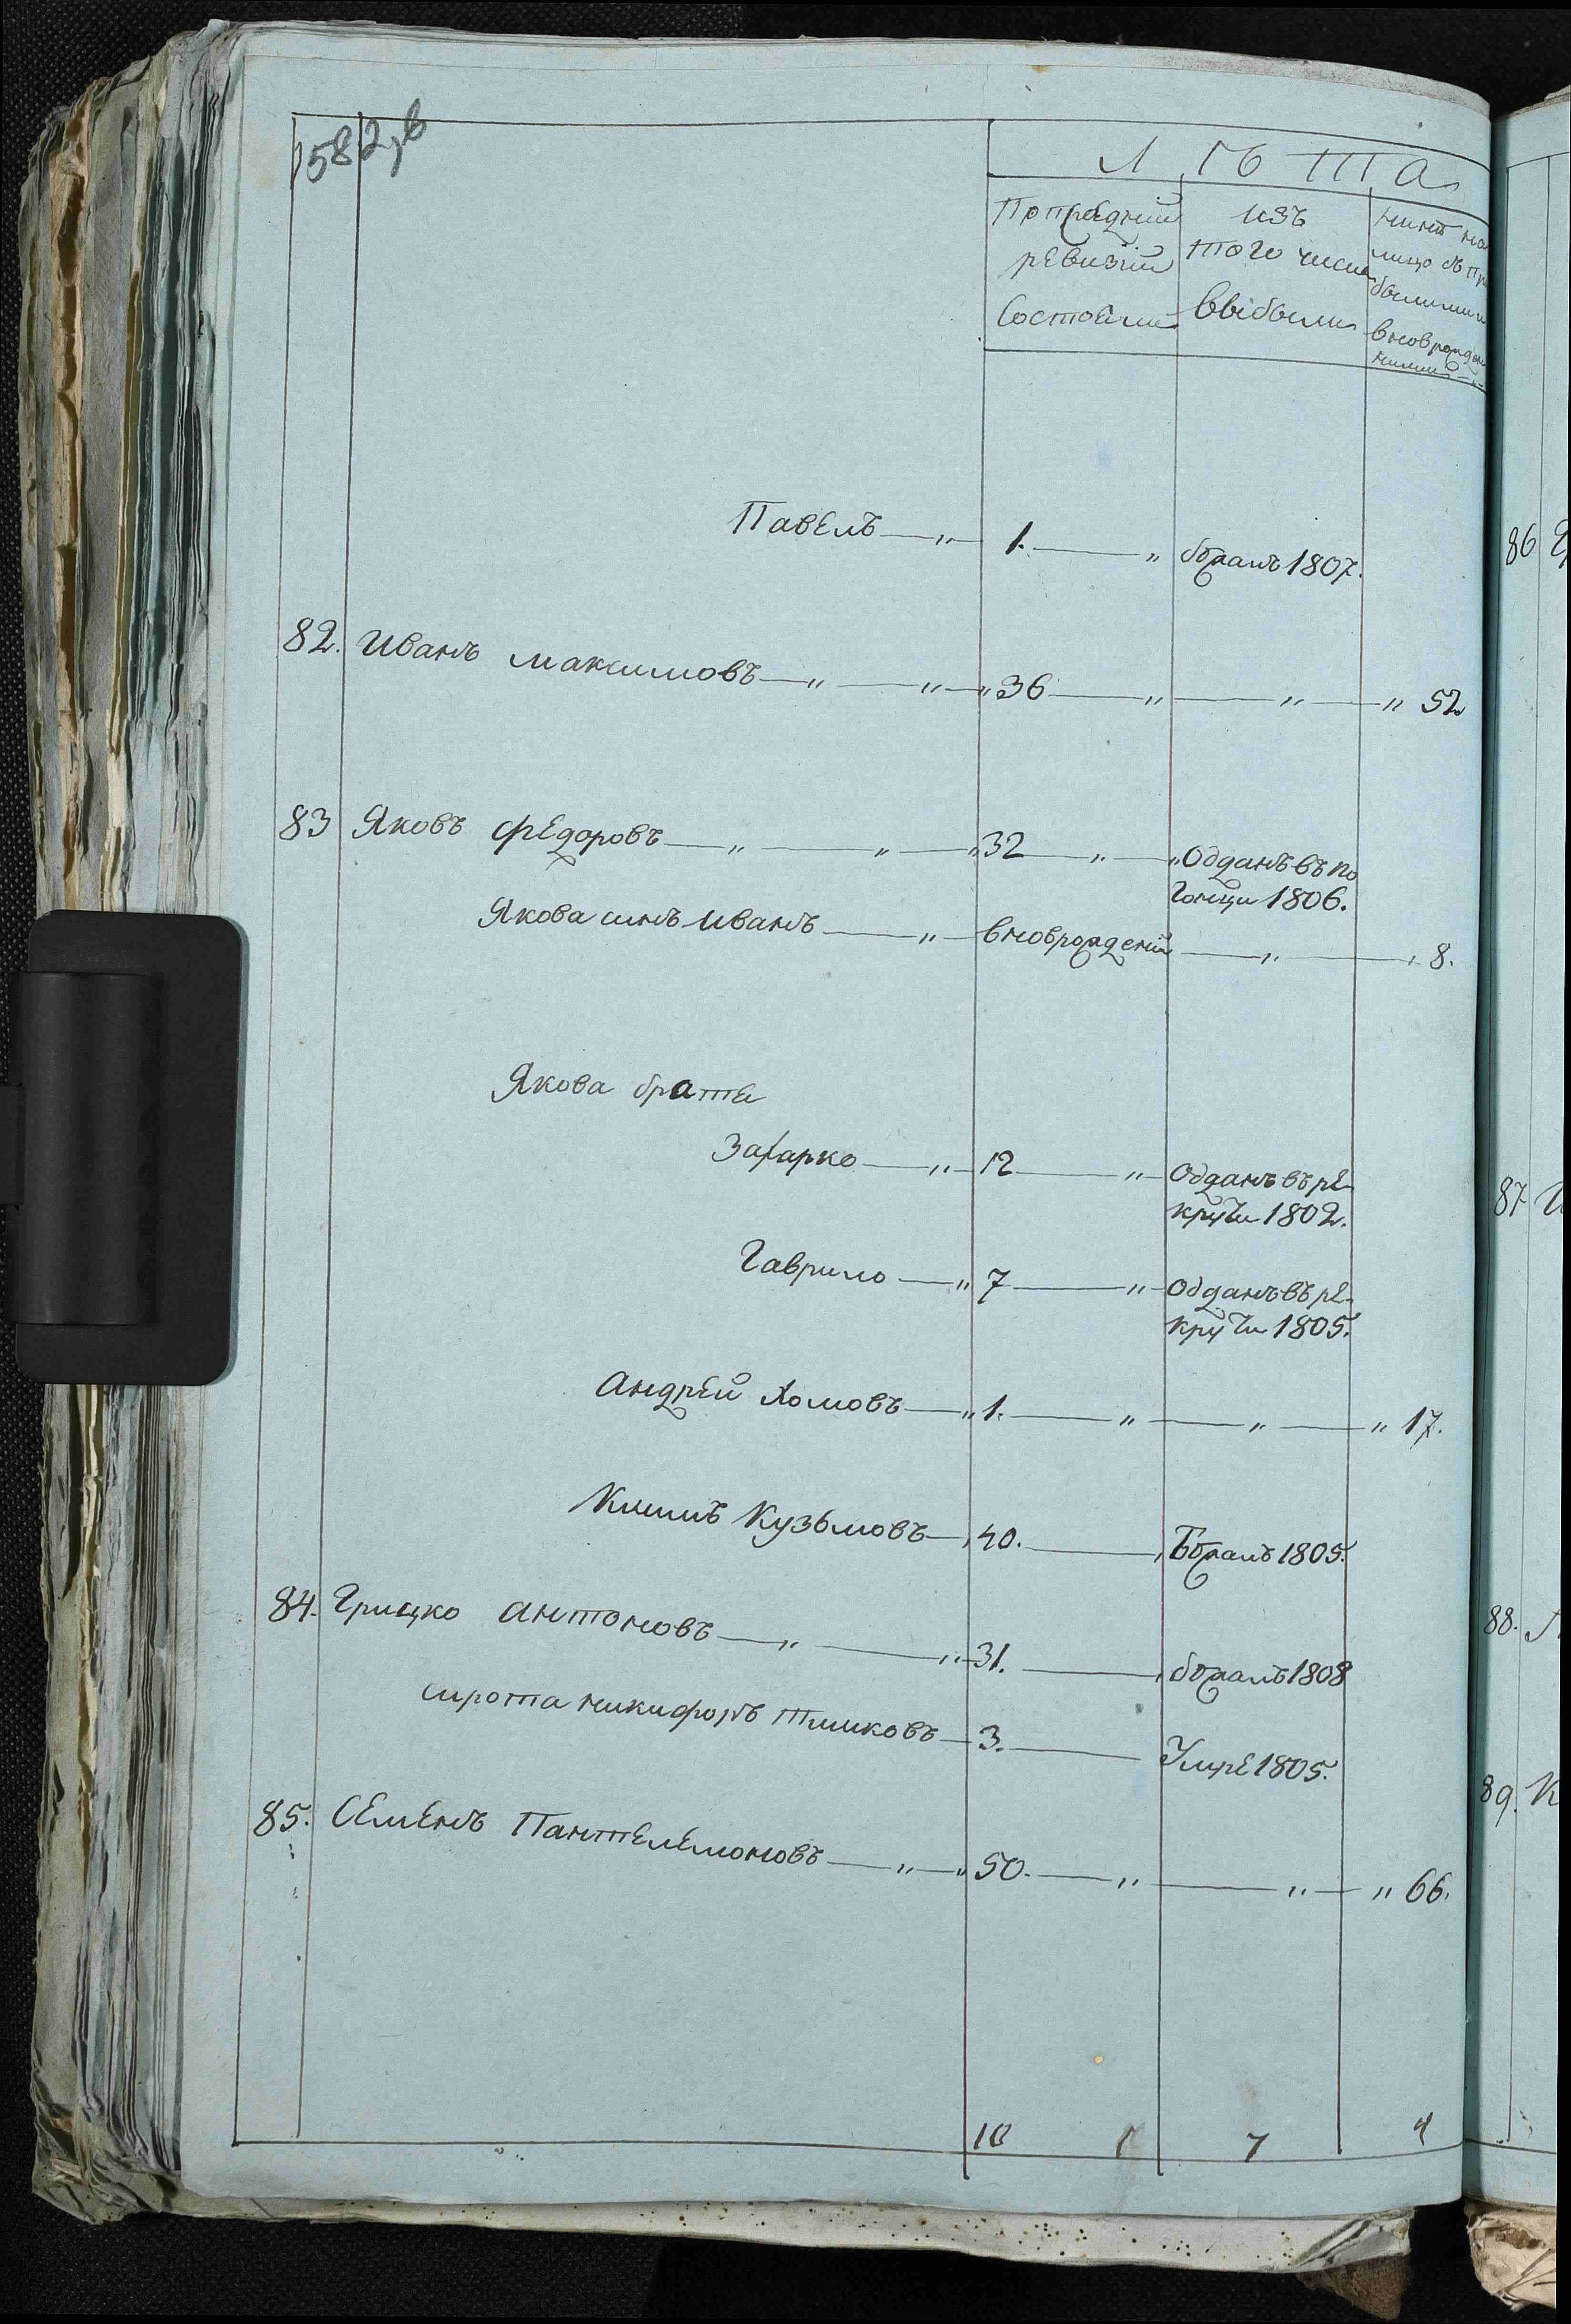 582,в
ЛѢТА
По предний
ревизии
Состояли
изъ
того числа
вибыли
нинѣ на
лицо съ при
былими и
вноврожден
ними
Павелъ — „ — 1. — „ бѣжалъ 1807.
82. Иванъ Максимовъ — „ — „ — „ 36 — „ — „ — „ 52
83 Яковъ Федоровъ — „ — „ — „ 32 — „ — „ Отданъ въ по
гонци 1806.
Якова синъ Иванъ — „ — вноврождений — „ — , 8.
Якова брати
Захарко — „ — 12 — „ — Отданъ въ ре-
крути 1802.
Гаврило — „ 7 — „ — Отданъ въ ре-
крути 1805.
Андрей Хомовъ — „ 1. — „ — „ — „ 17.
Климъ Кузьмовъ — , 40. — , Бѣжалъ 1805.
84. Грицко Антоновъ — „ — „ — 31. — , бѣжалъ 1808
сирота Никифоръ Тишковъ — 3. — Умре 1805.
85. Семенъ Пантелемоновъ — „ — „ 50. — „ — „ — „ 66.
10 1 7 4
86
87 И
88.
89. К